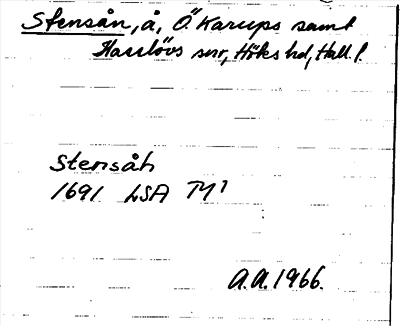 Stensån, å, Ö. Karups samt
Hasslövs snr, Höks hd, Hall. l.
Stensåh
1691 LSA TY¹
A.A. 1966.